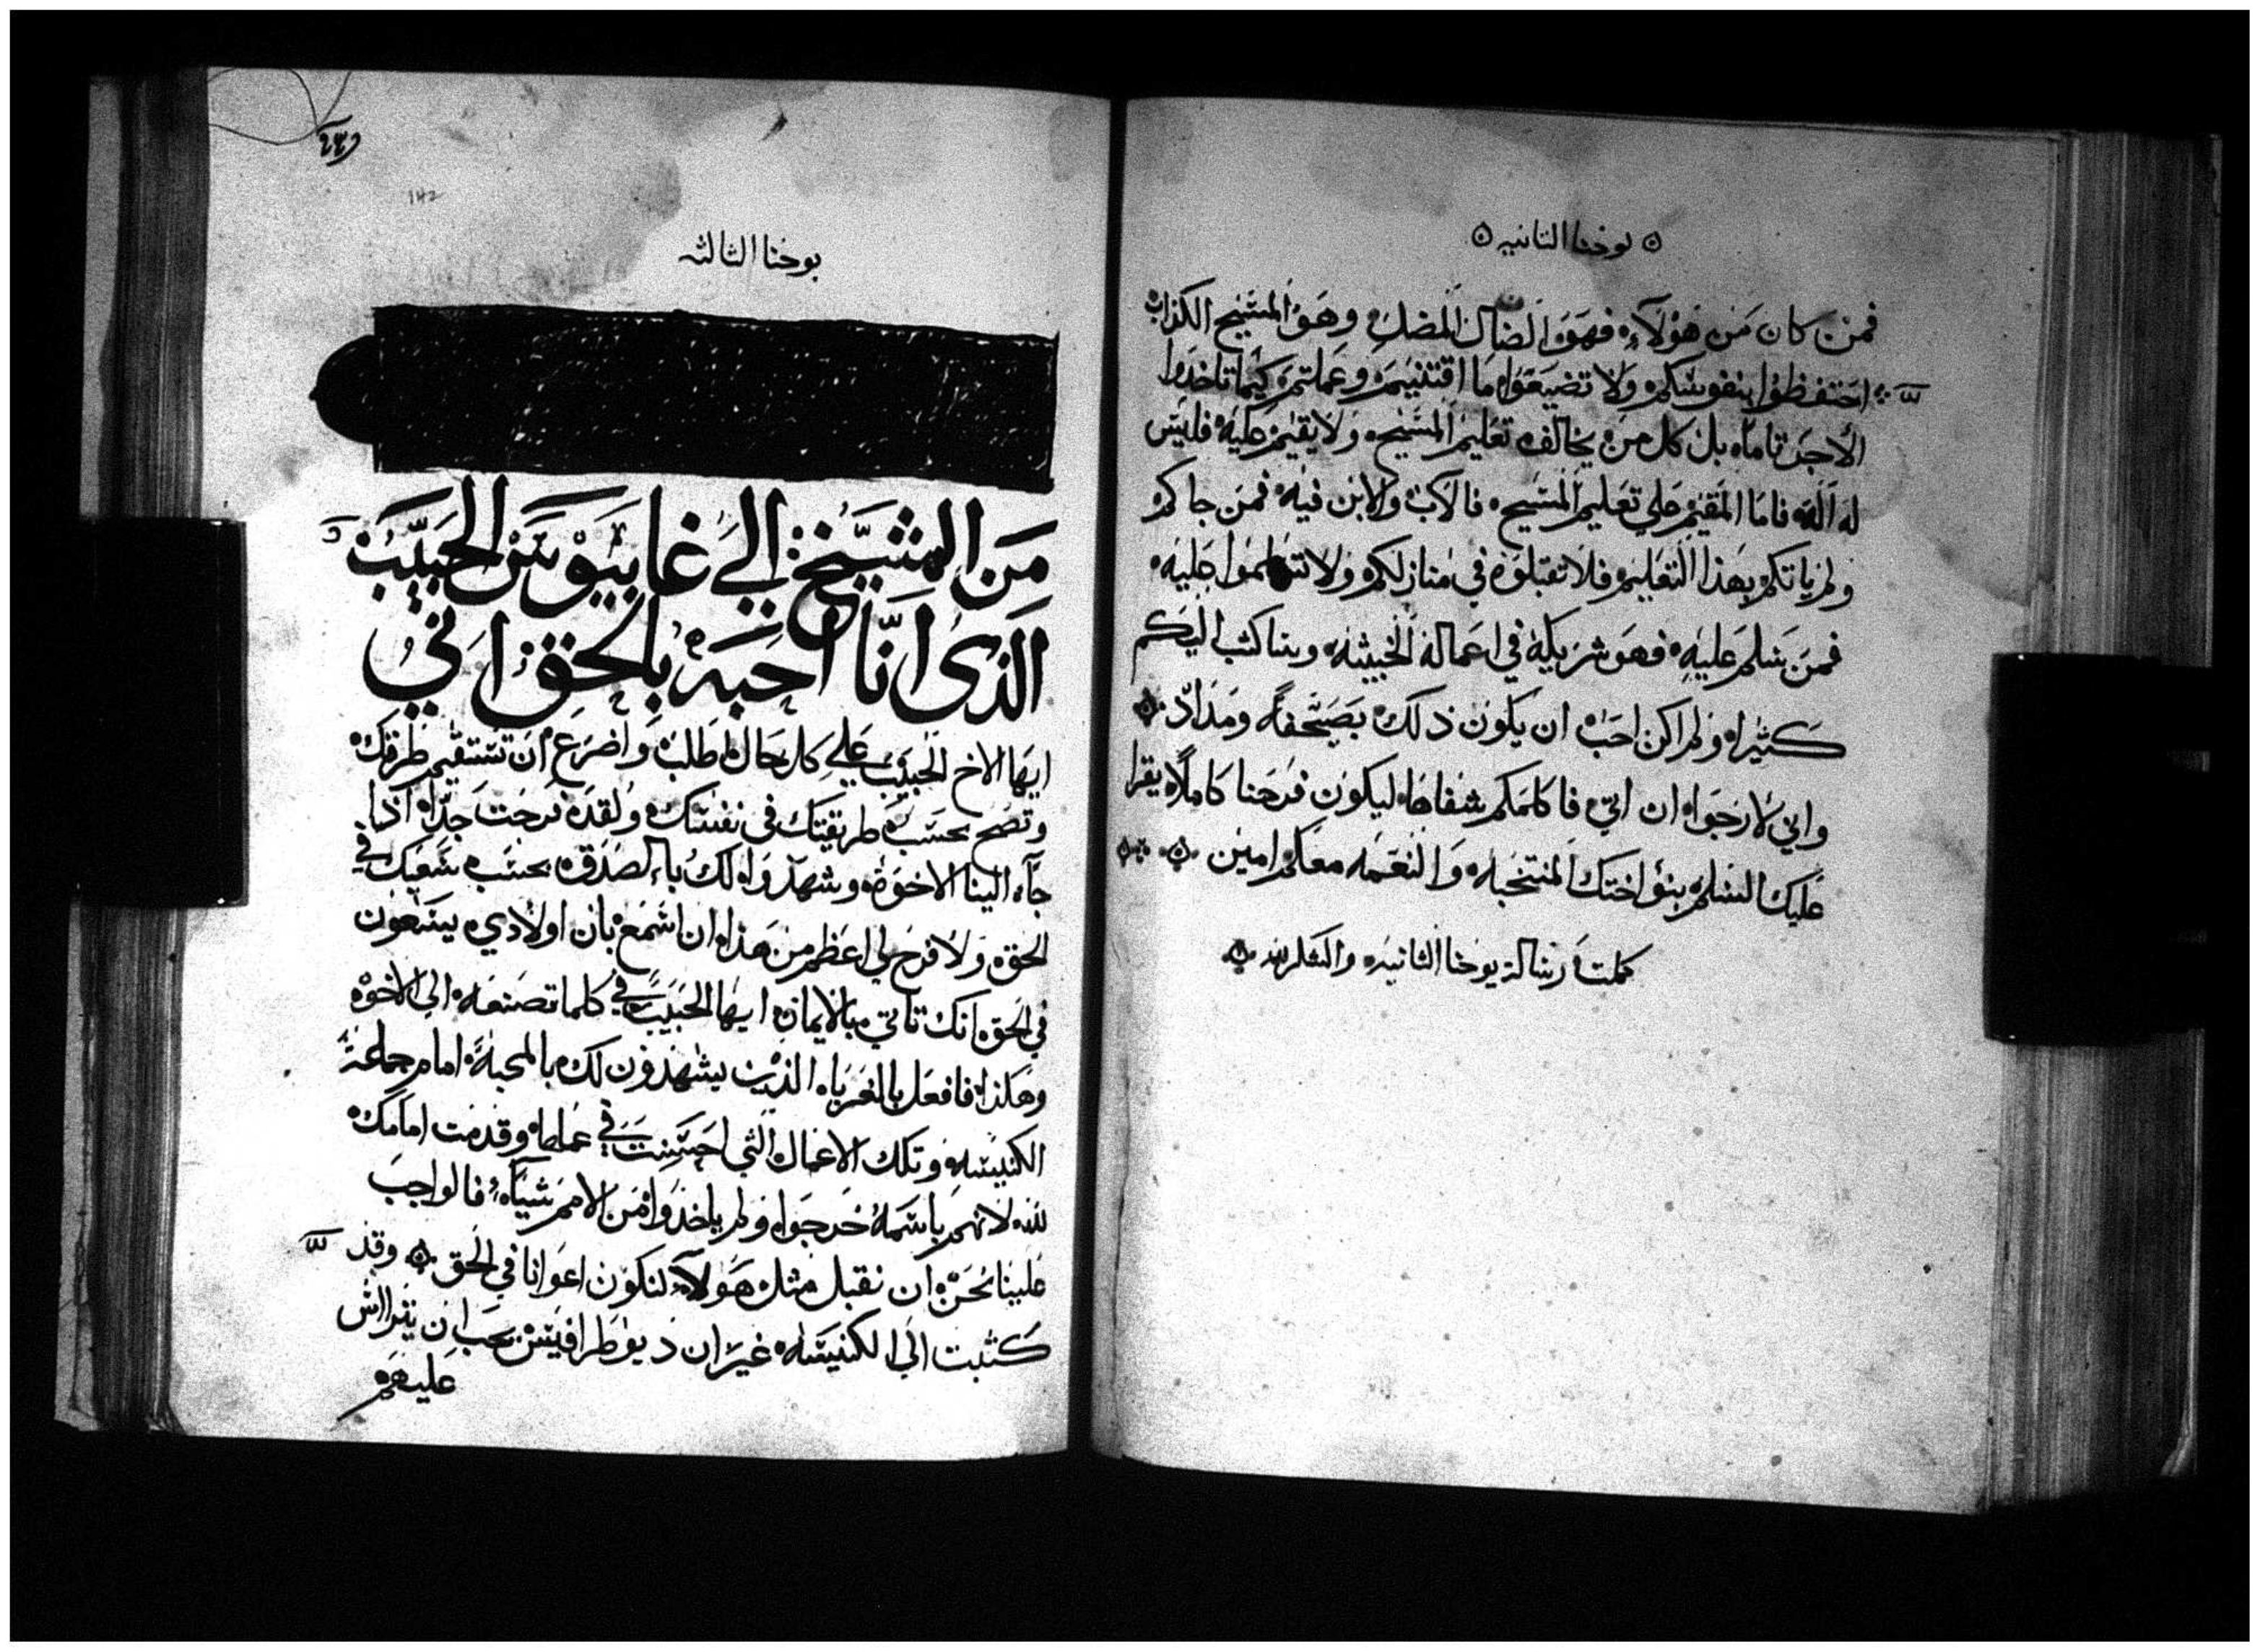 يوحنا الثانيه
فمن كان من هولآء فهو الضال المضل وهو المسيح الكذاب
احتفظوا بنفوسكم ولا تضيعوا ما اقتنيتم وعملتم كيما تاخذوا
الاجر تاما بل كل من يخالف تعليم المسيح ولا يقيم عليه فليس
له اله فاما المقيم علي تعليم المسيح فالاب والابن فيه فمن جاكم
ولم ياتكم بهذا التعليم فلا تقبلوه في منازلكم ولا تسلموا عليه
فمن سلم عليه فهو شريكه في اعماله الخبيثه وساكتب اليكم
كثيرا ولم اكن احب ان يكون ذلك بصحيفة ومداد
واني لارجوا ان اتي فاكلمكم شفاها ليكون فرحنا كاملا يقرا
عليك السلم بنو اختك المنتخبه والنعمه معكم امين
كملت رسالة يوحنا الثانيه والشكر لله
٢٣٦
142
يوحنا الثالثه
من الشيخ الي غاييوس الحبيب
الذي انا احبه بالحق اني
ايها الاخ الحبيب علي كل حال اطلب واضرع ان تستقيم طرقك
وتصح بحسب طريقتك في نفسك ولقد فرحت جدا اذا
جآء الينا الاخوة وشهدوا لك بالصدق بحسب سعيك في
الحق ولا فرح لي اعظم من هذا ان اسمع بان اولادي يسعون
في الحق انك تاتي بالايمان ايها الحبيب في كلما تصنعه الي الاخوة
وهكذا فافعل بالغربا الذين يشهدون لك بالمحبة امام جماعة
الكنيسه وتلك الاعمال التي احسنت في عملها وقدمت امامك
لله لانهم باسمه خرجوا ولم ياخذوا من الامم شيآء فالواجب
علينا نحن ان نقبل مثل هولآء لنكون اعوانا في الحق وقد
كتبت الي الكنيسه غير ان ديوطرافيس يحب ان يتراس
عليهم